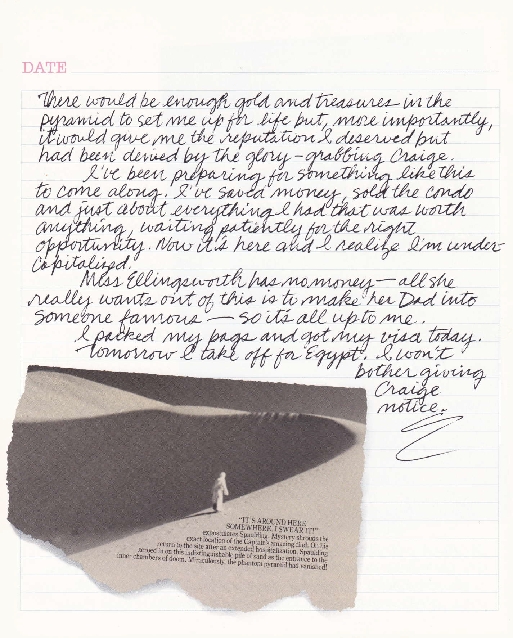 DATE
There would be enough gold and treasures in the
pyramid to set me up for life but, more importantly,
it would give me the reputation I deserved but
had been denied by the glory-grabbing Craige.
I've been preparing for something like this
to come along. I've saved money, sold the condo
and just about everything I had that was worth
anything, waiting patiently for the right
opportunity. Now it's here and I realize I'm under-
capitalized.
Miss Ellingsworth has no money — all she
really wants out of this is to make her Dad into
someone famous — so it's all up to me.
I packed my bags and got my visa today.
Tomorrow I take off for Egypt. I won't
bother giving
Craige
notice.
"IT'S AROUND HERE
SOMEWHERE, I SWEAR IT!"
expostulates Spaulding. Mystery shrouds the
exact location of the Captain's amazing find. On his
return to the site after an extended hospitalization, Spaulding
zeroed in on this indistinguishable pile of sand as the entrance to the
inner chambers of doom. Miraculously, the phantom pyramid has vanished!